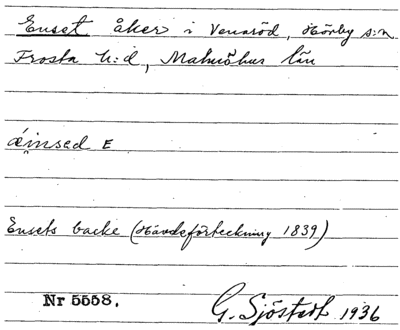 Enset åker i Venaröd, Hörby s:n
Frosta h:d, Malmöhus län
ǽinsed E
Ensets backe (Hävdeförteckning 1839)
Nr 5558.
G. Sjöstedt 1936